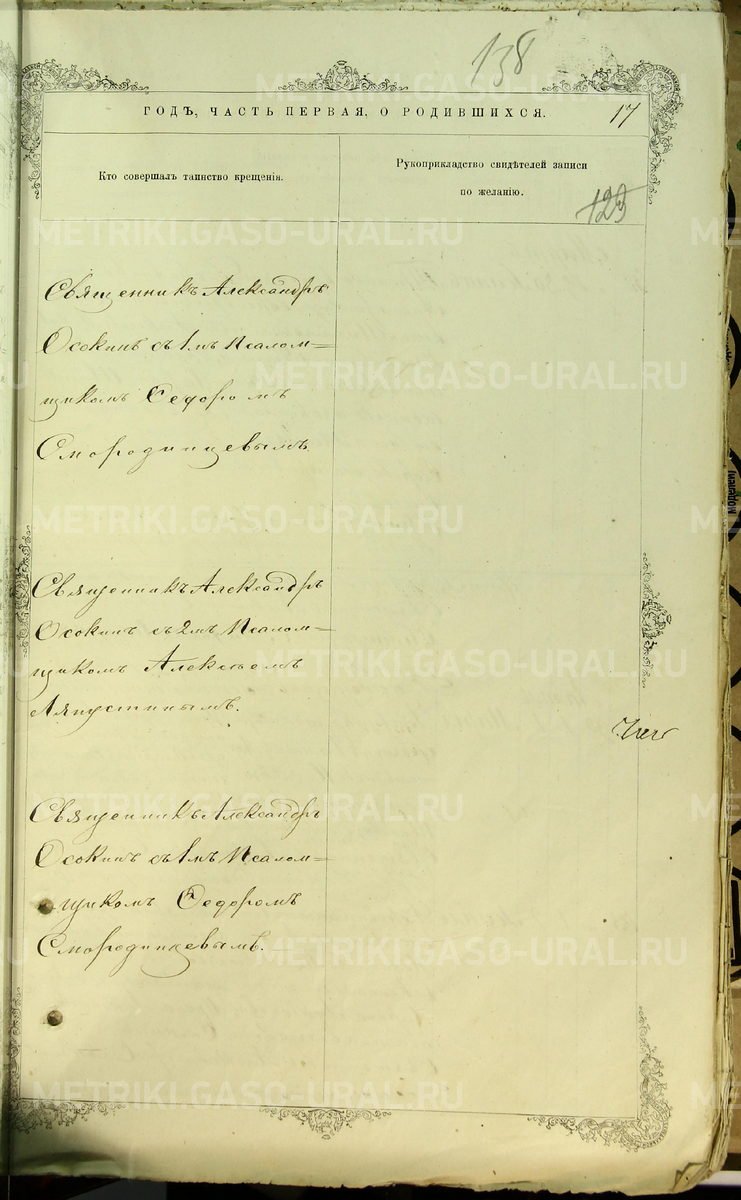 138
ГОДЪ, ЧАСТЬ ПЕРВАЯ, О РОДИВШИХСЯ.
17
Кто совершалъ таинство крещенія.
Рукоприкладство свидѣтелей записи
по желанію.
123
Священникъ Александръ
Осокинъ съ 1мъ Псалом=
щикомъ Ѳедоромъ
Смородинцевымъ
Священникъ Александръ
Осокинъ съ 2мъ Псалом=
щикомъ Алексѣемъ
Ляпустинымъ.
Священникъ Александръ
Осокинъ съ 1мъ Псалом=
щикомъ Ѳедоромъ
Смородинцевымъ.
METRIKI.GASO-URAL.RU
моделей)